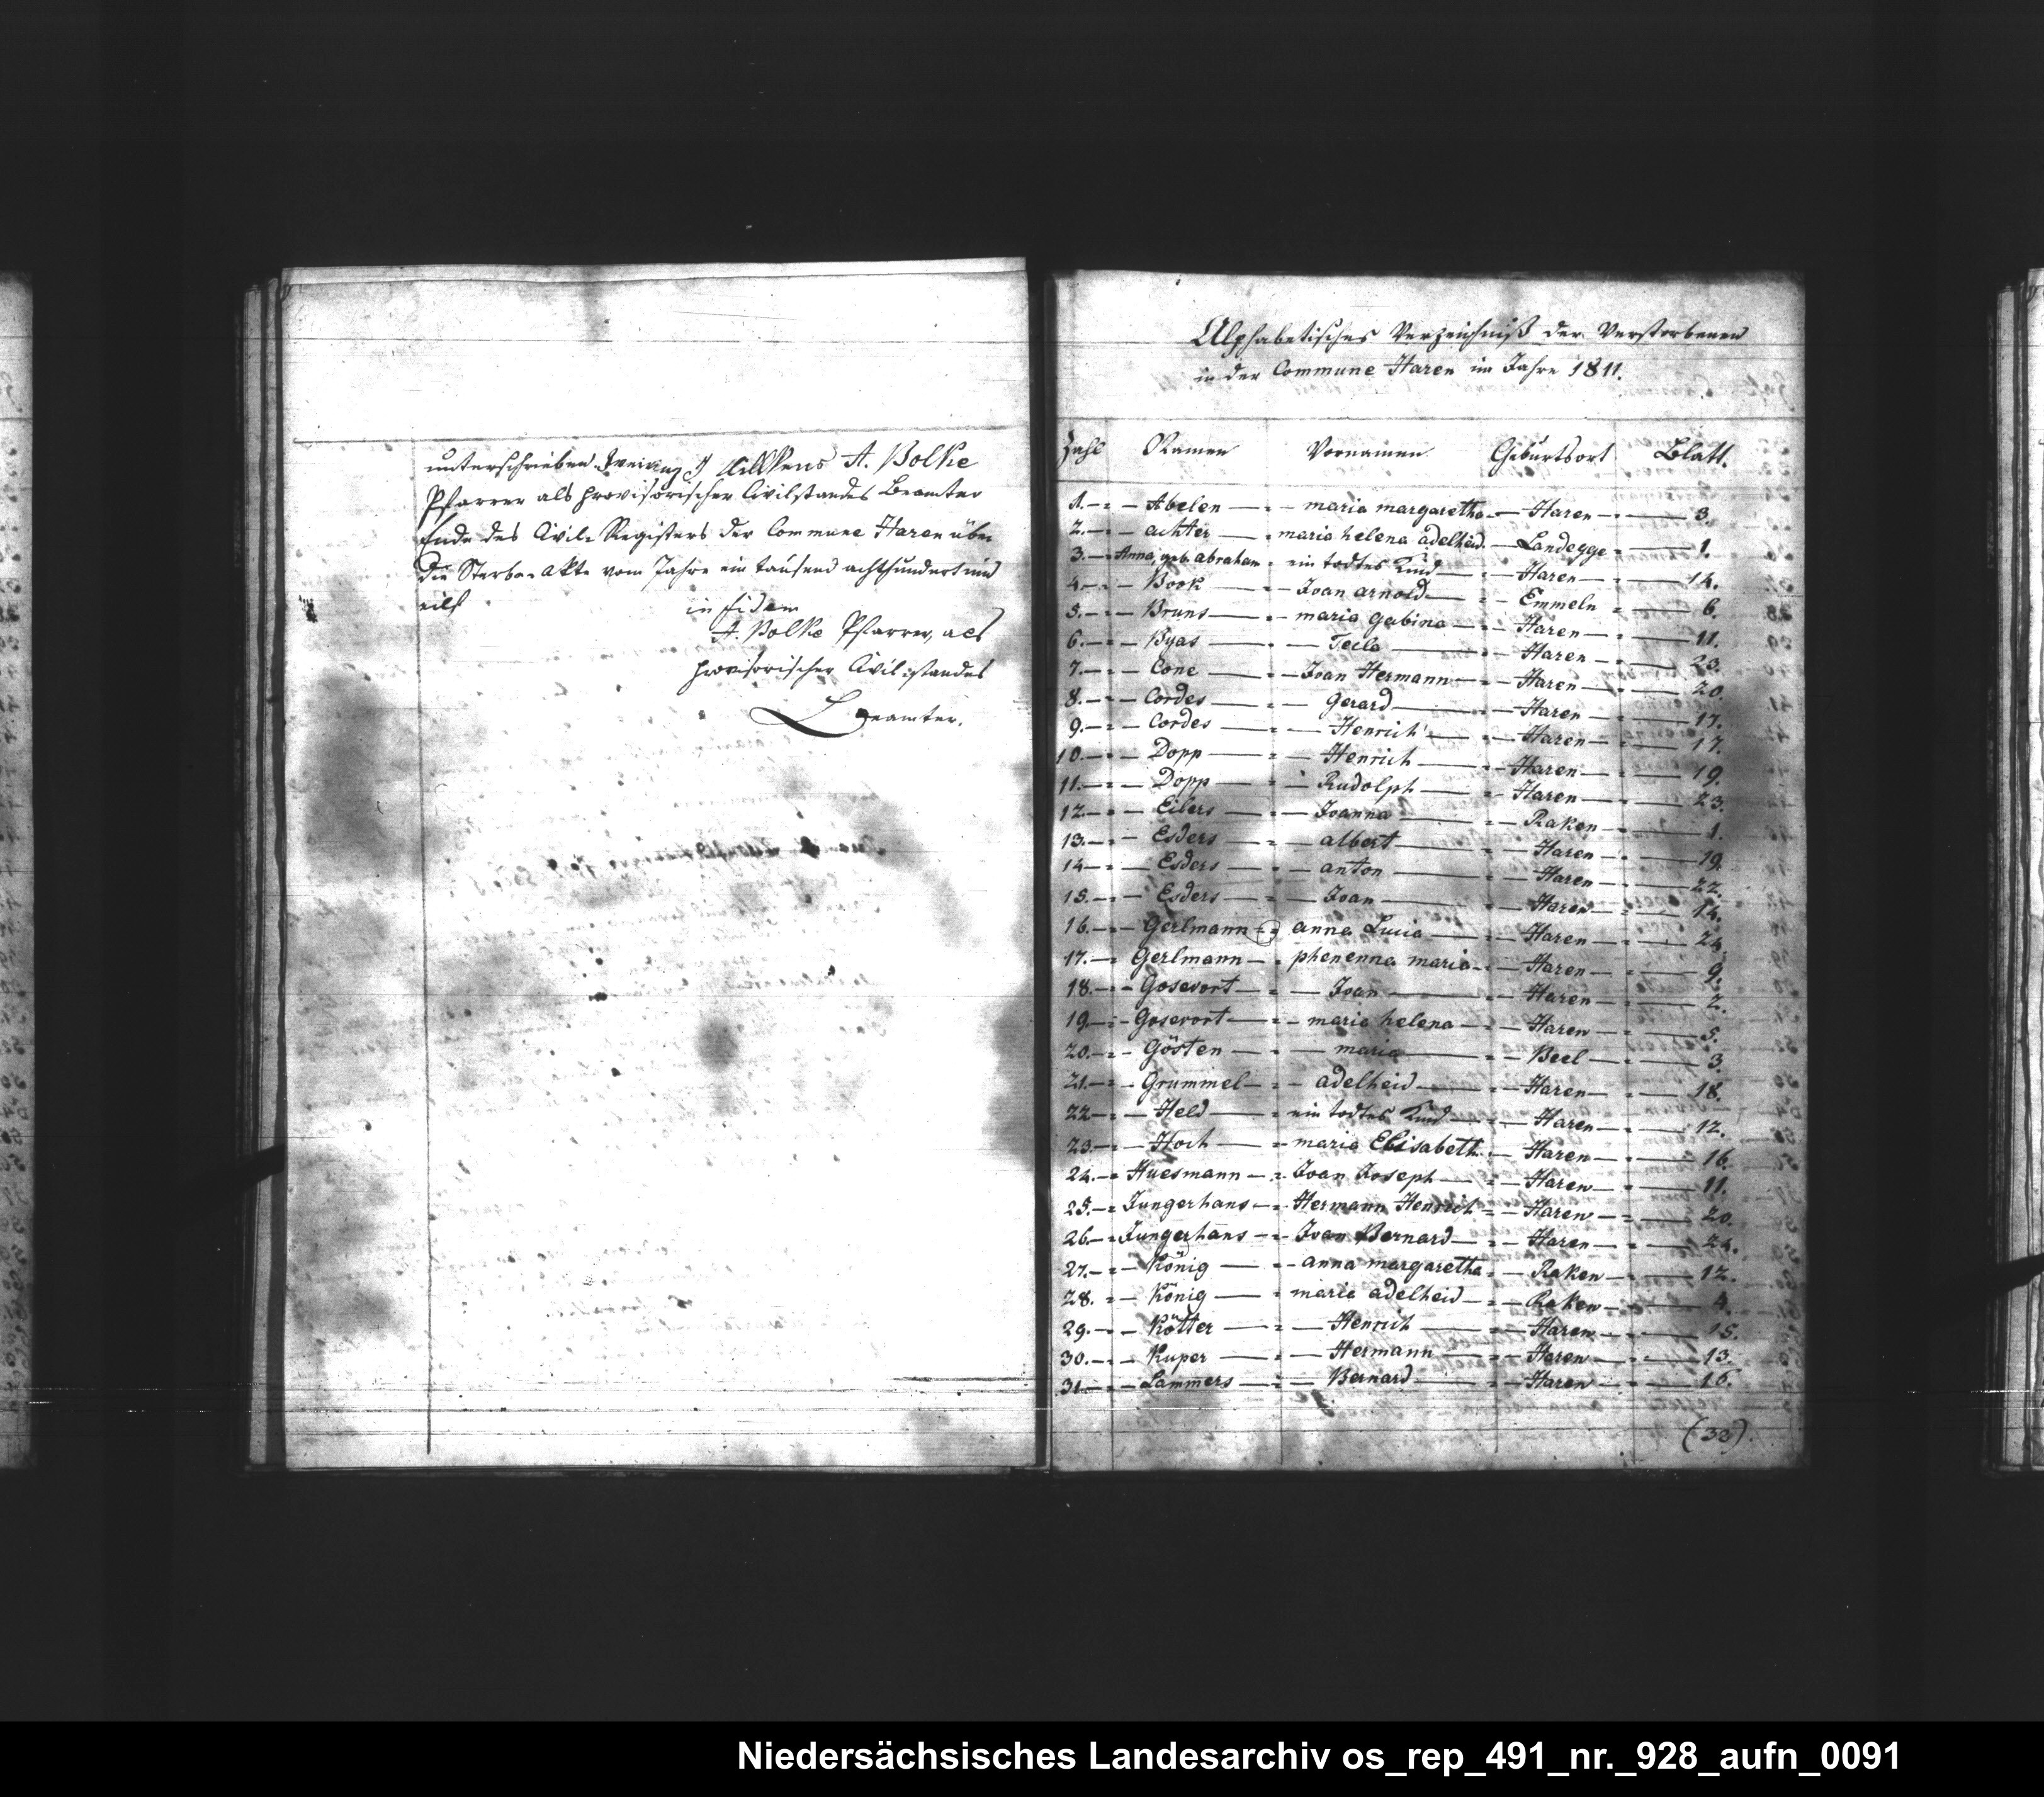 unterschrieben J Willkens A. Bolke
Pfarrer als provisorischer Civilstandes Beamter
Ende des Civil-Registers der Commune Haren über
die Sterbe-Akte vom Jahre ein tausend achthundert und
eilf
in fidem
A. Bolke Pfarrer, als
provisorischer Civil-standes
Beamter.
Alphabetisches Verzeichniß der Verstorbenen
in der Commune Haren im Jahre 1811.
Zahl Namen Vornamen Geburtsort Blatt.
1. Abelen maria margaretha Haren 3.
2. achter maria helena adelheid Landegge 1.
3. Anna, geb. abraham ein todtes Kind Haren 14.
4. Book Joan arnold Emmeln 6.
5. Bruns maria gabina Haren 11.
6. Byas Teila Haren 23.
7. Cone Joan Hermann Haren 20.
8. Cordes Gerard Haren 17.
9. Cordes Henrich Haren 17.
10. Dopp Henrich Haren 19.
11. Dopp Rudolph Haren 23.
12. Eilers Joanna Raken 1.
13. Esders albert Haren 19.
14 Esders anton Haren 22.
15. Esders Joan Haren 14.
16. Gerlmann anna Lucia Haren 24.
17. Gerlmann phenenna maria Haren 9.
18. Gosevort Joan Haren 2.
19. Gosevort maria helena Haren 5.
20. Gösten maria Beel 3.
21. Grummel adelheid Haren 18.
22. Held ein todtes Kind Haren 12.
23. Hoch maria Elisabeth Haren 16.
24. Huesmann Joan Joseph Haren 11.
25. Jungerhans Hermann Henrich Haren 20.
26. Jungerhans Joan Bernard Haren 24.
27. König anna margaretha Raken 12.
28. König maria adelheid Raken 4.
29. Kötter Henrich Haren 15.
30. Kuper Hermann Haren 13.
31. Lammers Bernard Haren 16.
(32).
Niedersächsisches Landesarchiv os_rep_491_nr._928_aufn_0091